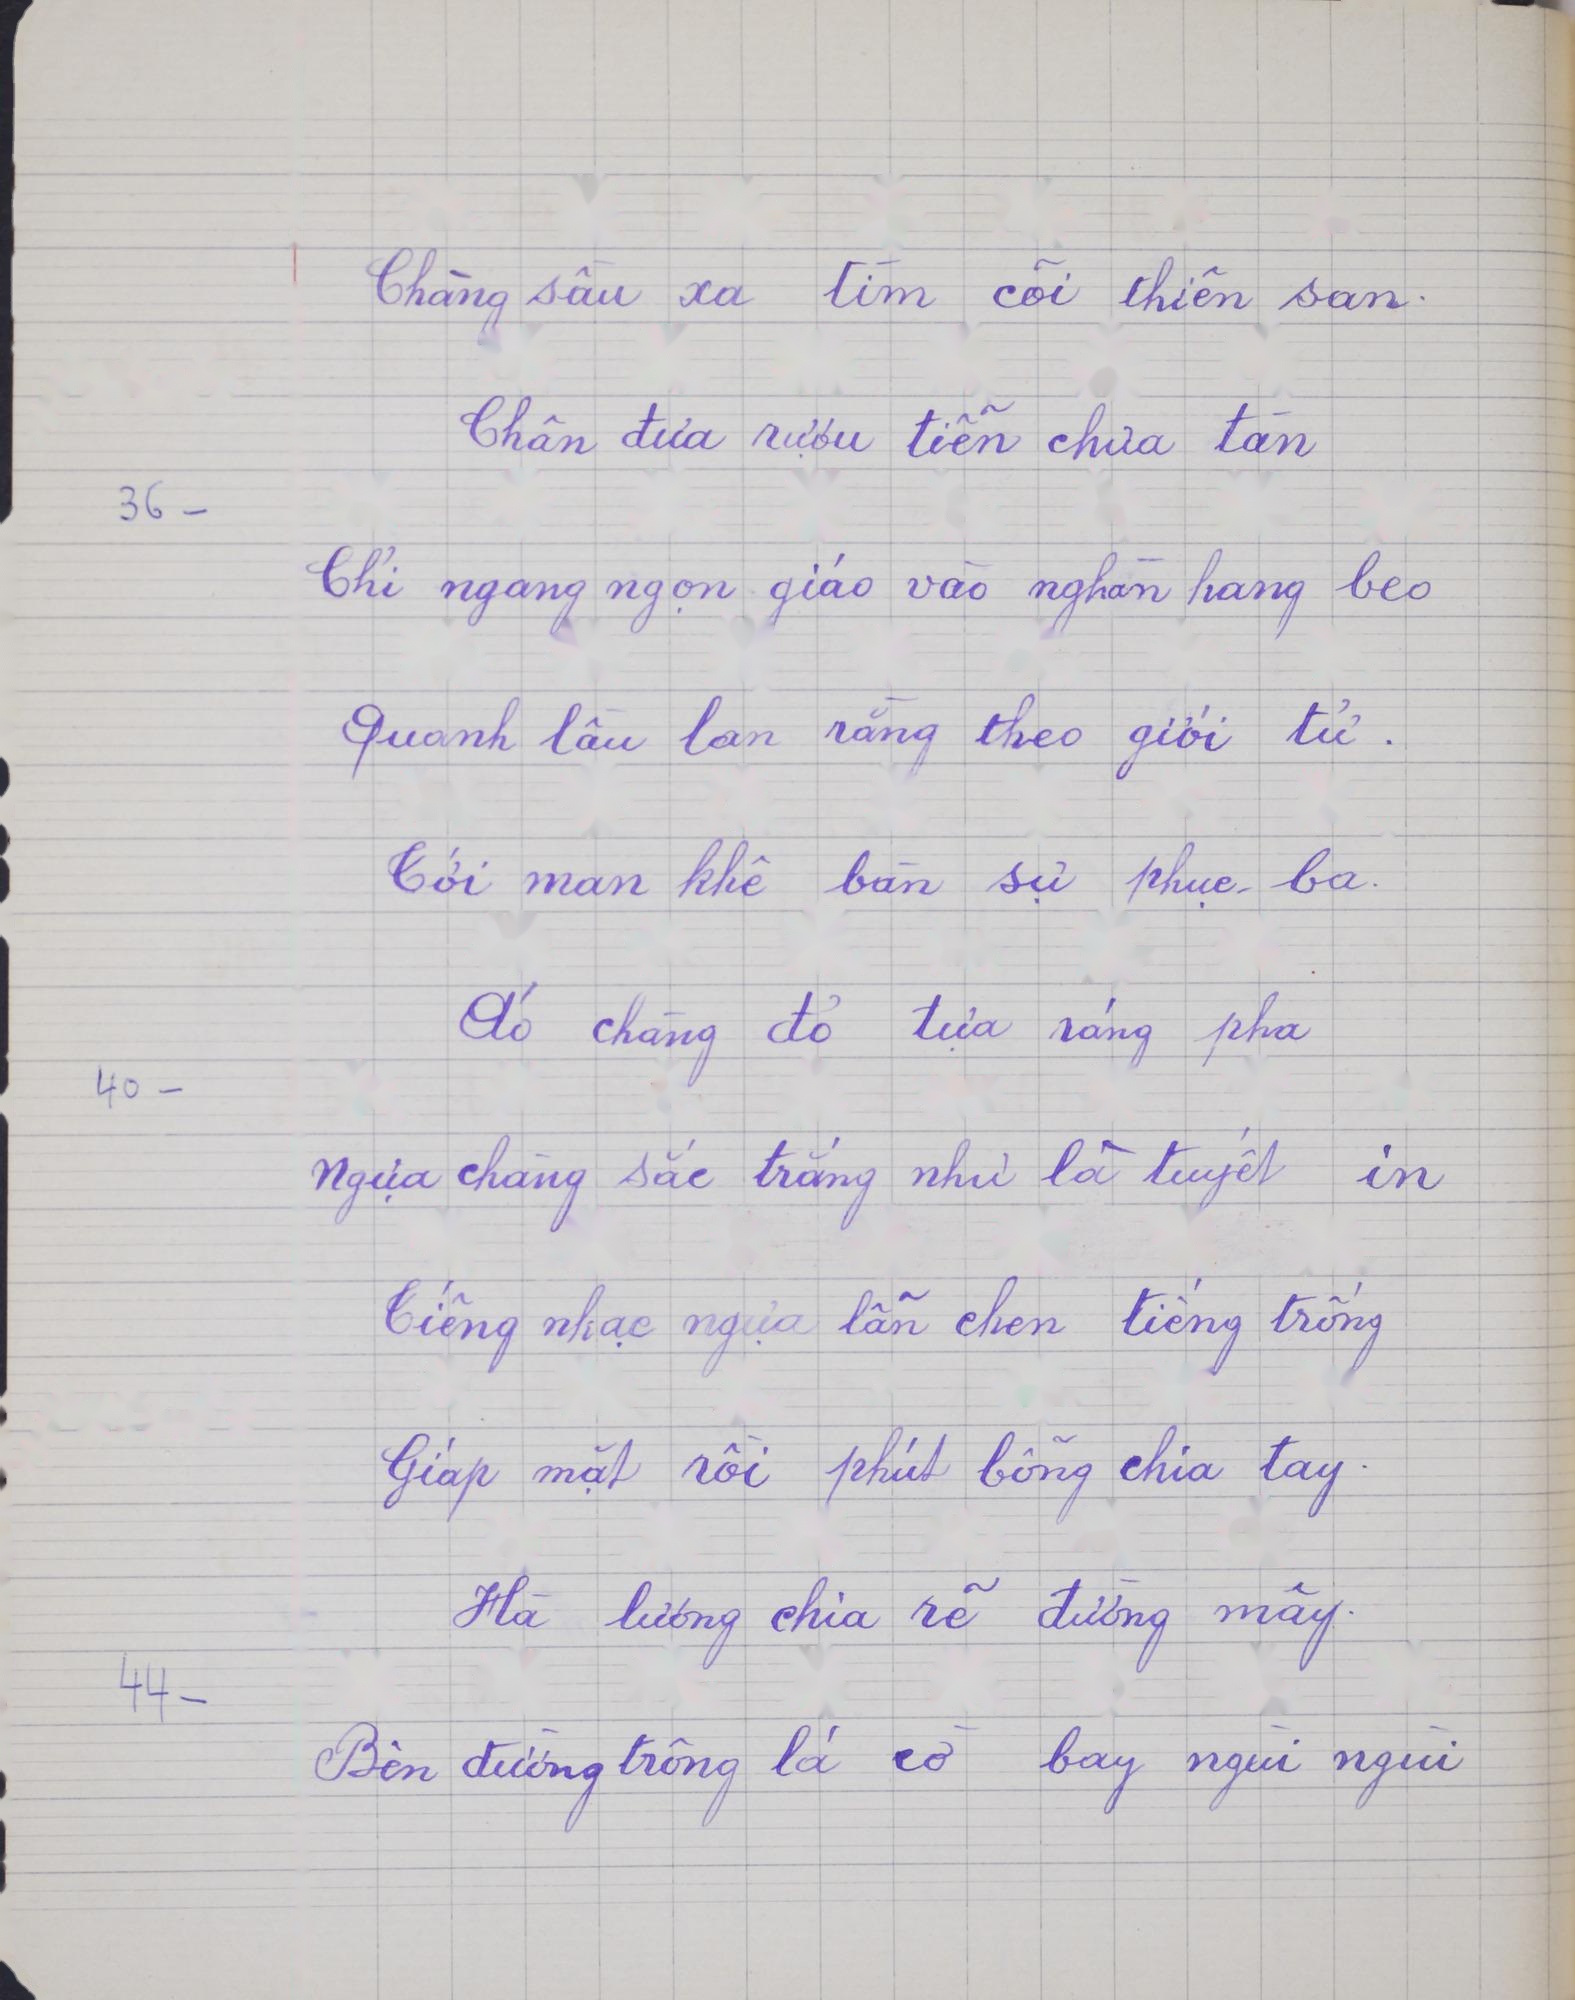 Chàng sầu xa tìm cõi thiên san.
Chân đưa rượu tiễn chưa tàn
36 -
Chỉ ngang ngọn giáo vào nghàn hang beo
Quanh lâu lan rằng theo giới tử.
Tới man khê bàn sự phục - ba.
Áo chàng đỏ tựa ráng pha
40 -
Ngựa chàng sắc trắng như là tuyết in
Tiếng nhạc ngựa lẫn chen tiếng trống
Giáp mặt rồi phút bỗng chia tay.
Hà lương chia rẽ đường mây.
44 -
Bên đường trông lá cờ bay ngùi ngùi